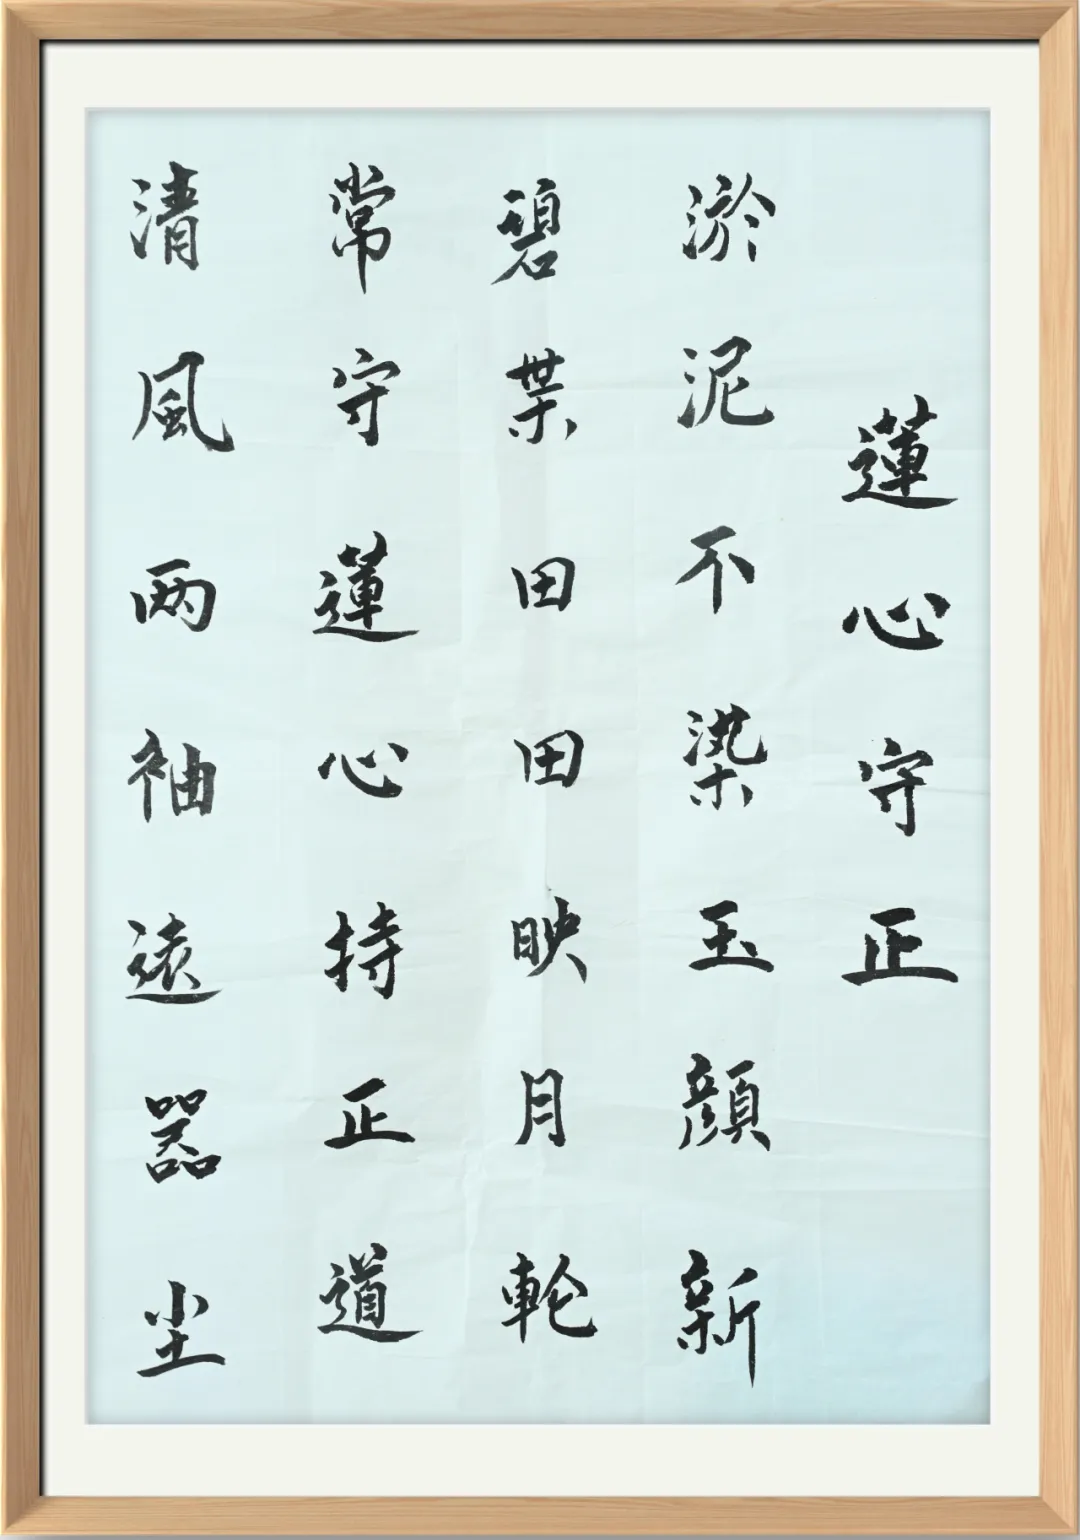 蓮心守正
淤泥不染玉顔新
碧葉田田映月輪
常守蓮心持正道
清風两袖遠嚣尘